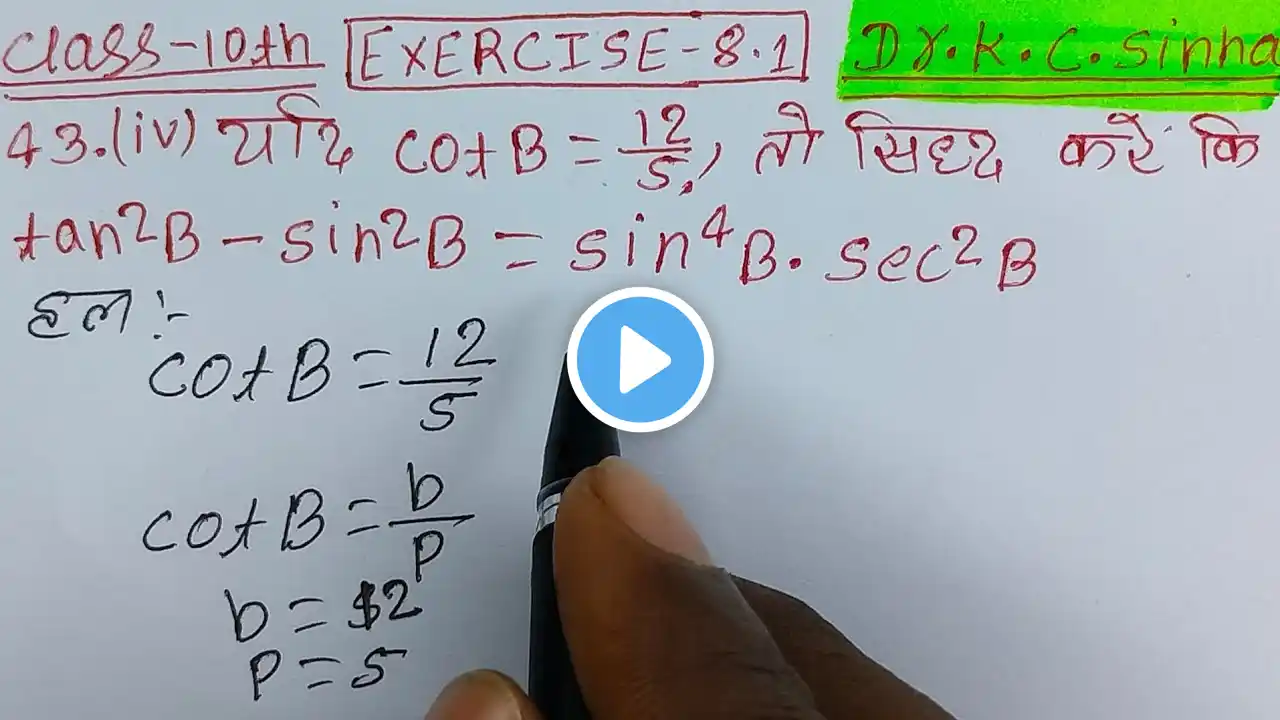 Class-10th EXERCISE-8.1 Dr.K.C.Sinha
43.(iv) यदि cotB = 12/5, तो सिध्द करें कि
tan²B - sin²B = sin⁴B. sec²B
हल :-
cotB = 12/5
cotB = b/p
b = 12
P = 5